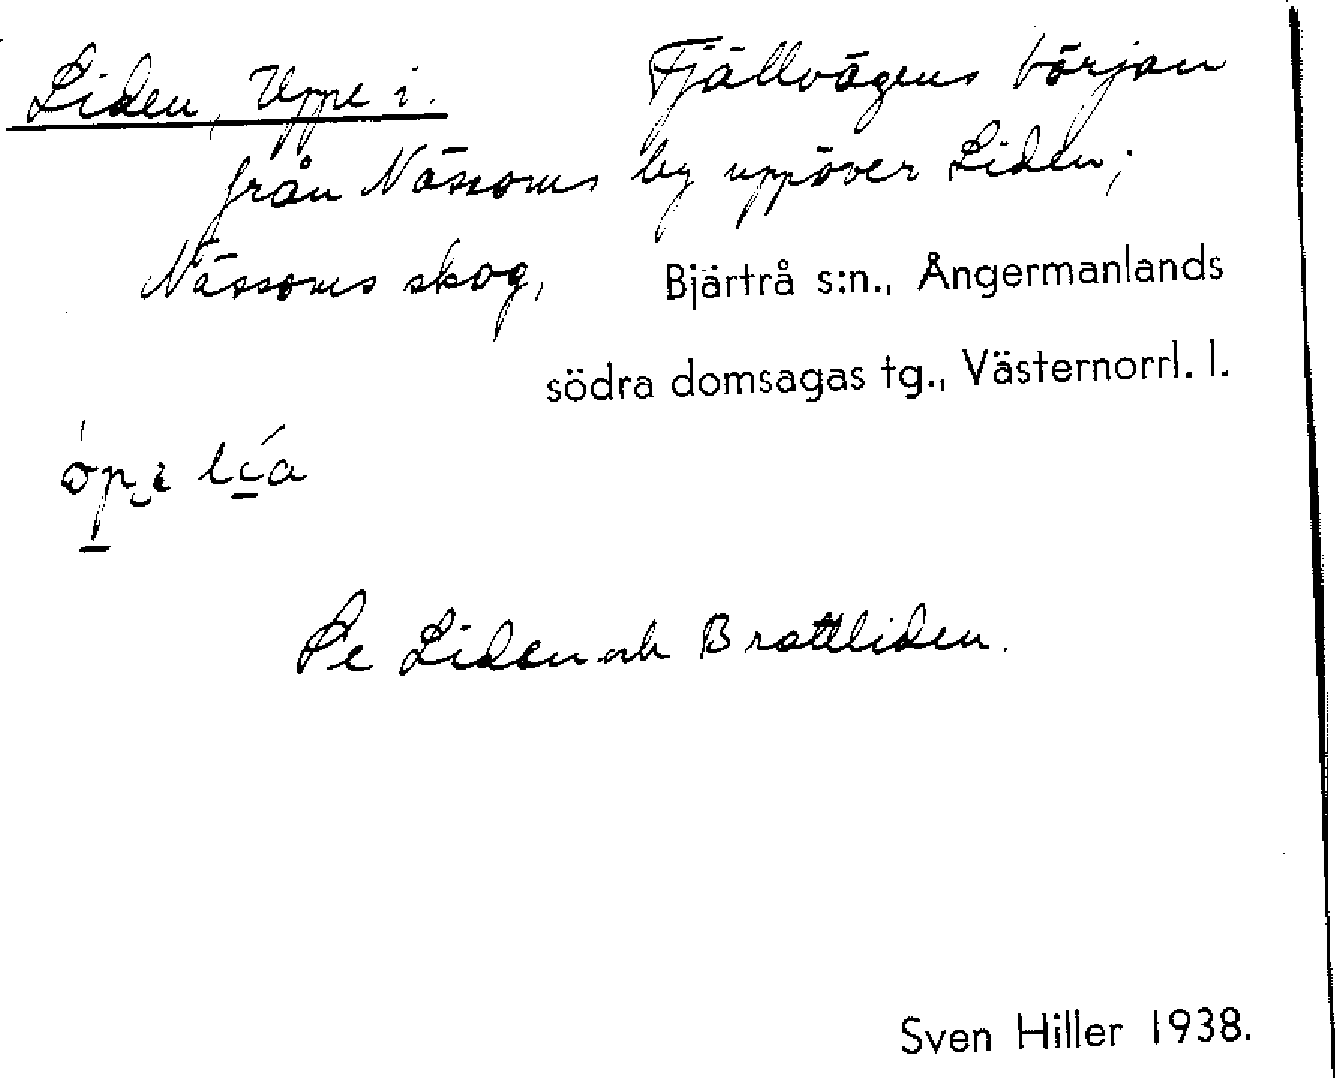 Liden, Uppe i. Fjällvägens början
från Nässoms by uppöver Liden;
Nässoms skog, Bjärtrå s:n., Ångermanlands
södra domsagas tg., Västernorrl. l.
Se Liden och Brattliden.
Sven Hiller 1938.